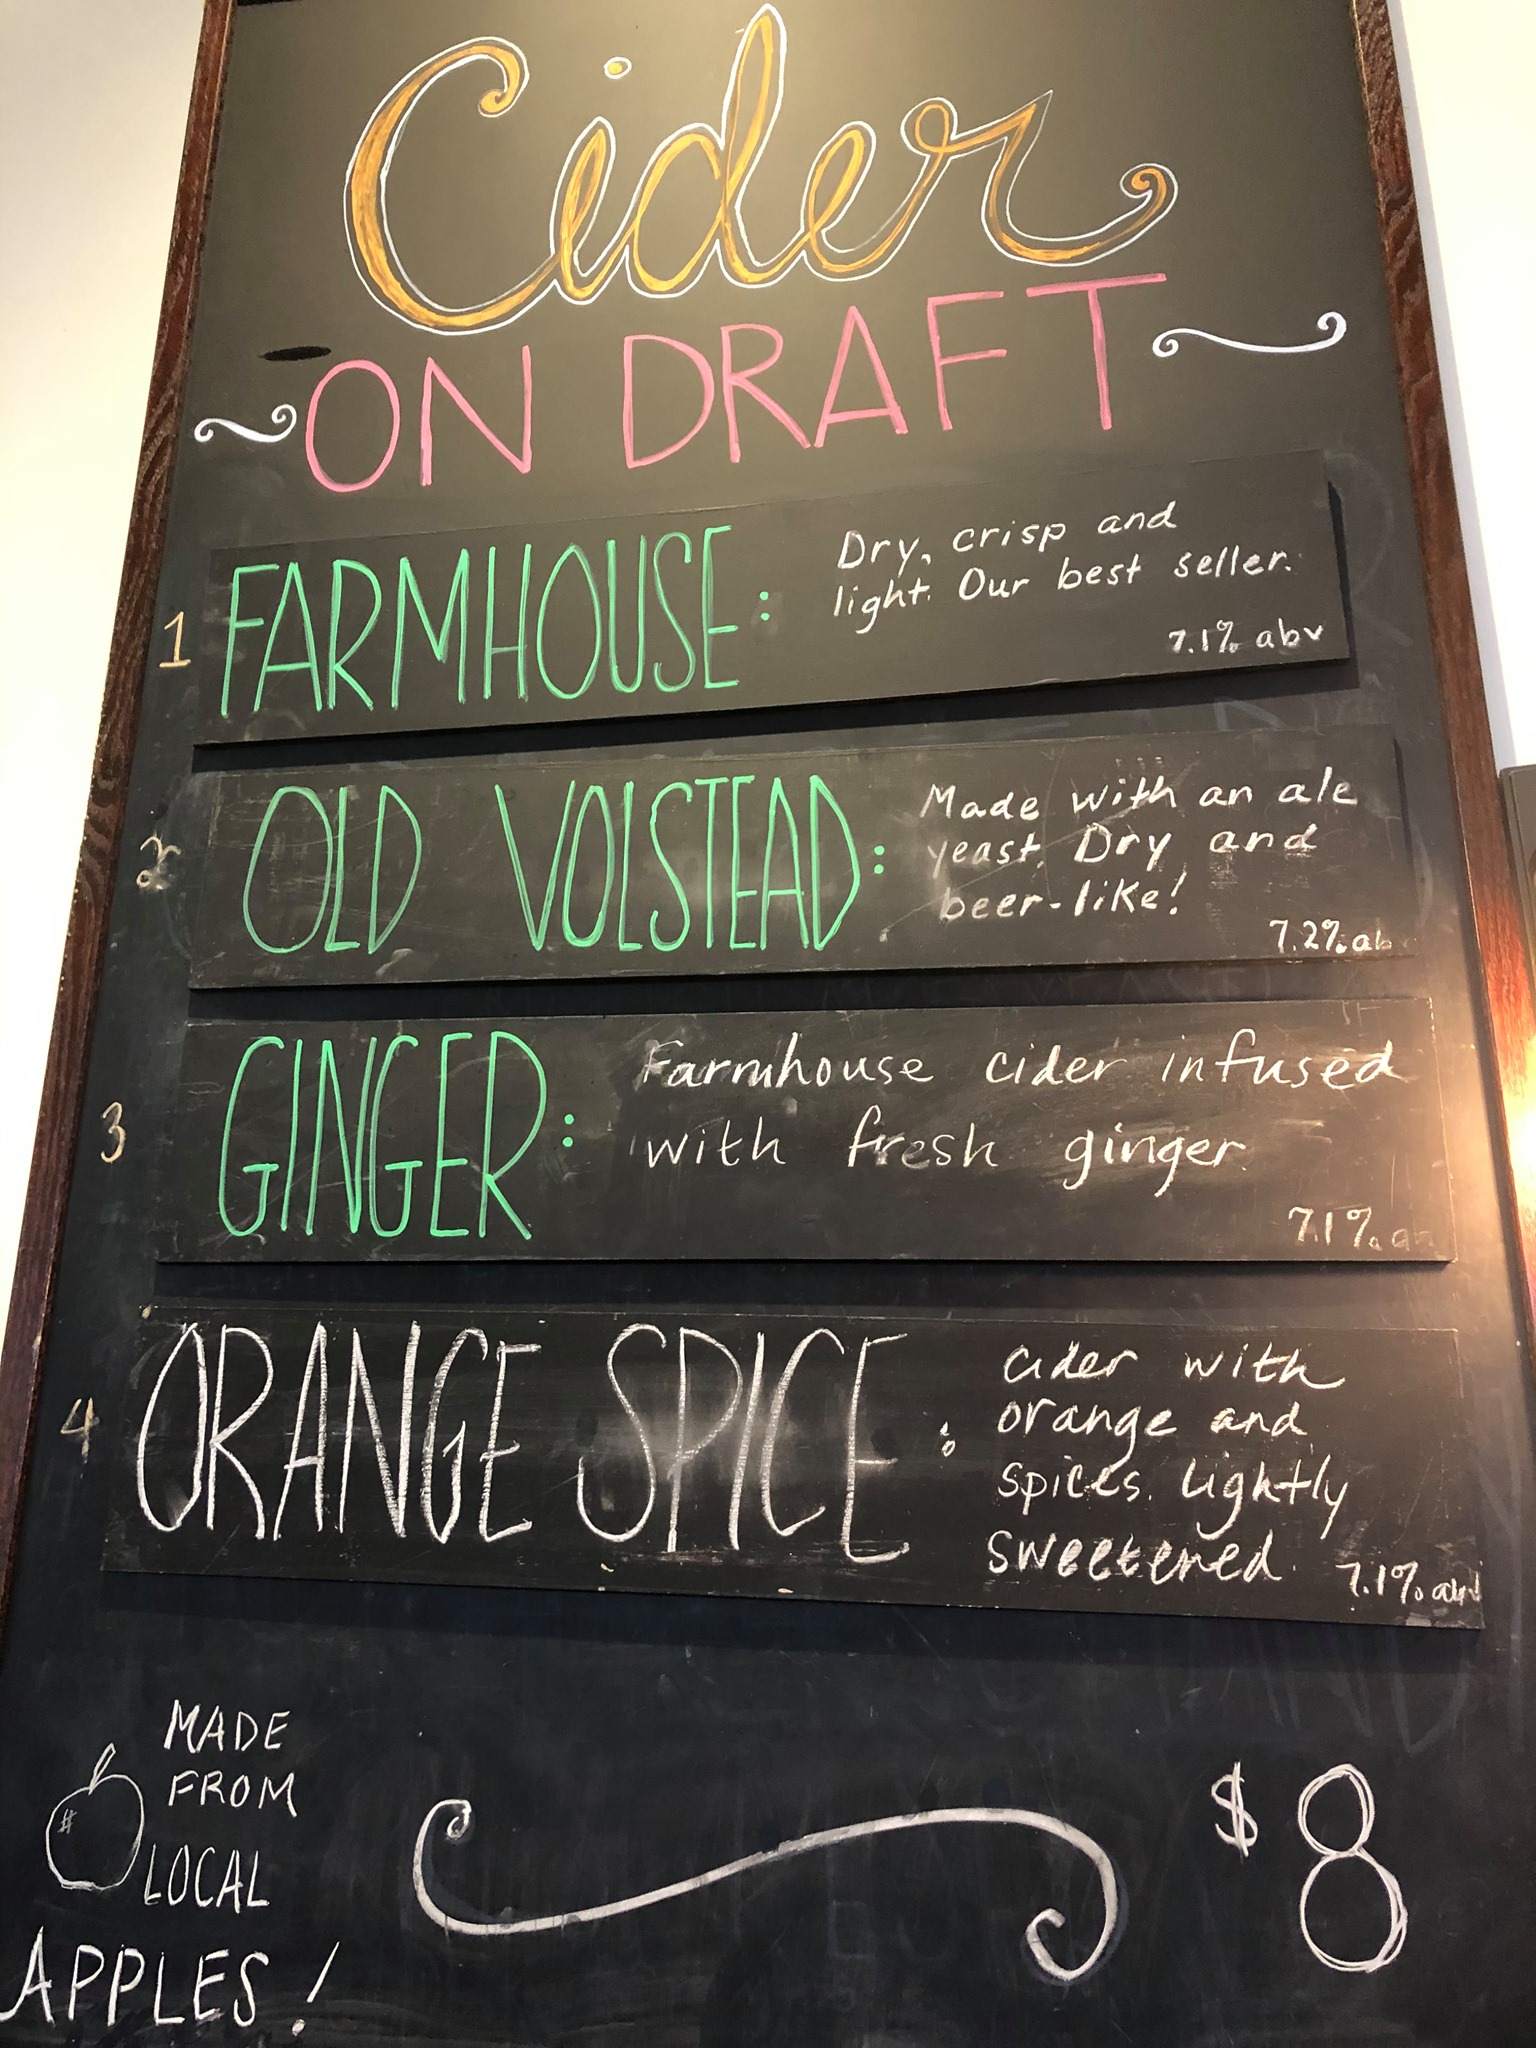 Cider
ON DRAFT
1 FARMHOUSE: Dry, crisp and
light. Our best seller.
7.1% abv
2 OLD VOLSTEAD: Made with an ale
yeast. Dry and
beer-like!
7.2% ab
3 GINGER: Farmhouse cider infused
with fresh ginger.
7.1%
4 ORANGE SPICE: cider with
orange and
spices. Lightly
sweetened. 7.1% abv
MADE
FROM
LOCAL
APPLES!
$8